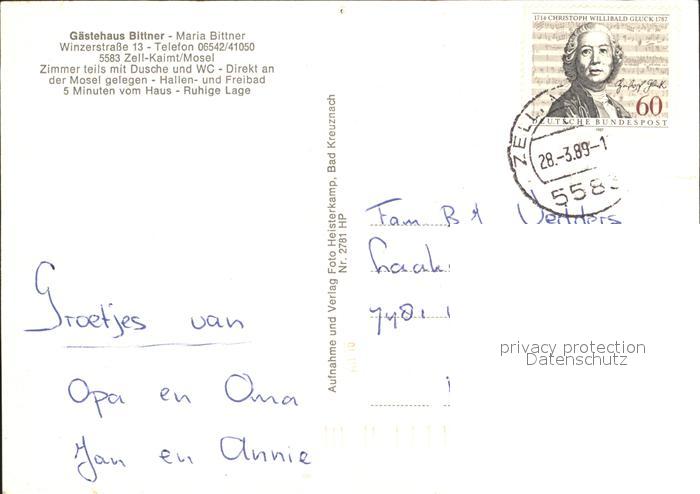 Gästehaus Bittner - Maria Bittner
Winzerstraße 13 - Telefon 06542/41050
5583 Zell-Kaimt/Mosel
Zimmer teils mit Dusche und WC - Direkt an
der Mosel gelegen - Hallen- und Freibad
5 Minuten vom Haus - Ruhige Lage
1714 CHRISTOPH WILLIBALD GLUCK 1787
60
DEUTSCHE BUNDESPOST
ZELL
28.-3.89-1
5583
Aufnahme und Verlag Foto Heisterkamp, Bad Kreuznach
Nr. 2781 HP
Fam
privacy protection
Datenschutz
Groetjes van
Opa en Oma
Jan en Annie